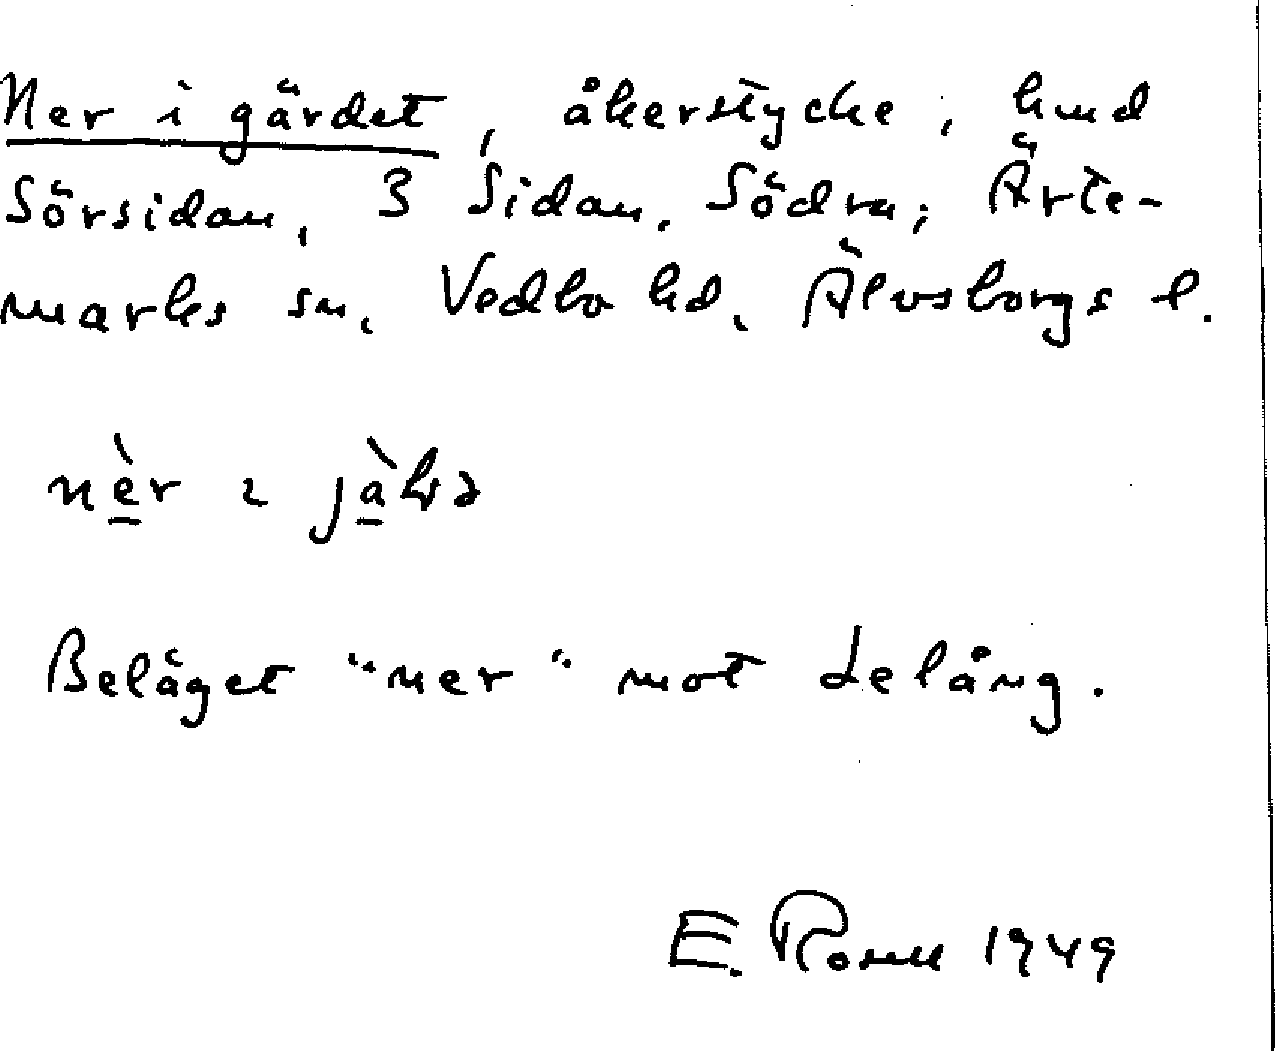 Ner i gärdet, åkerstycke, hmd
Sörsidan, 3 Sidan, Södra; Ärte-
marks sn, Vedbo hd, Älvsborgs l.
nèr ɩ
Beläget "ner" mot Lelång.
E. 1949